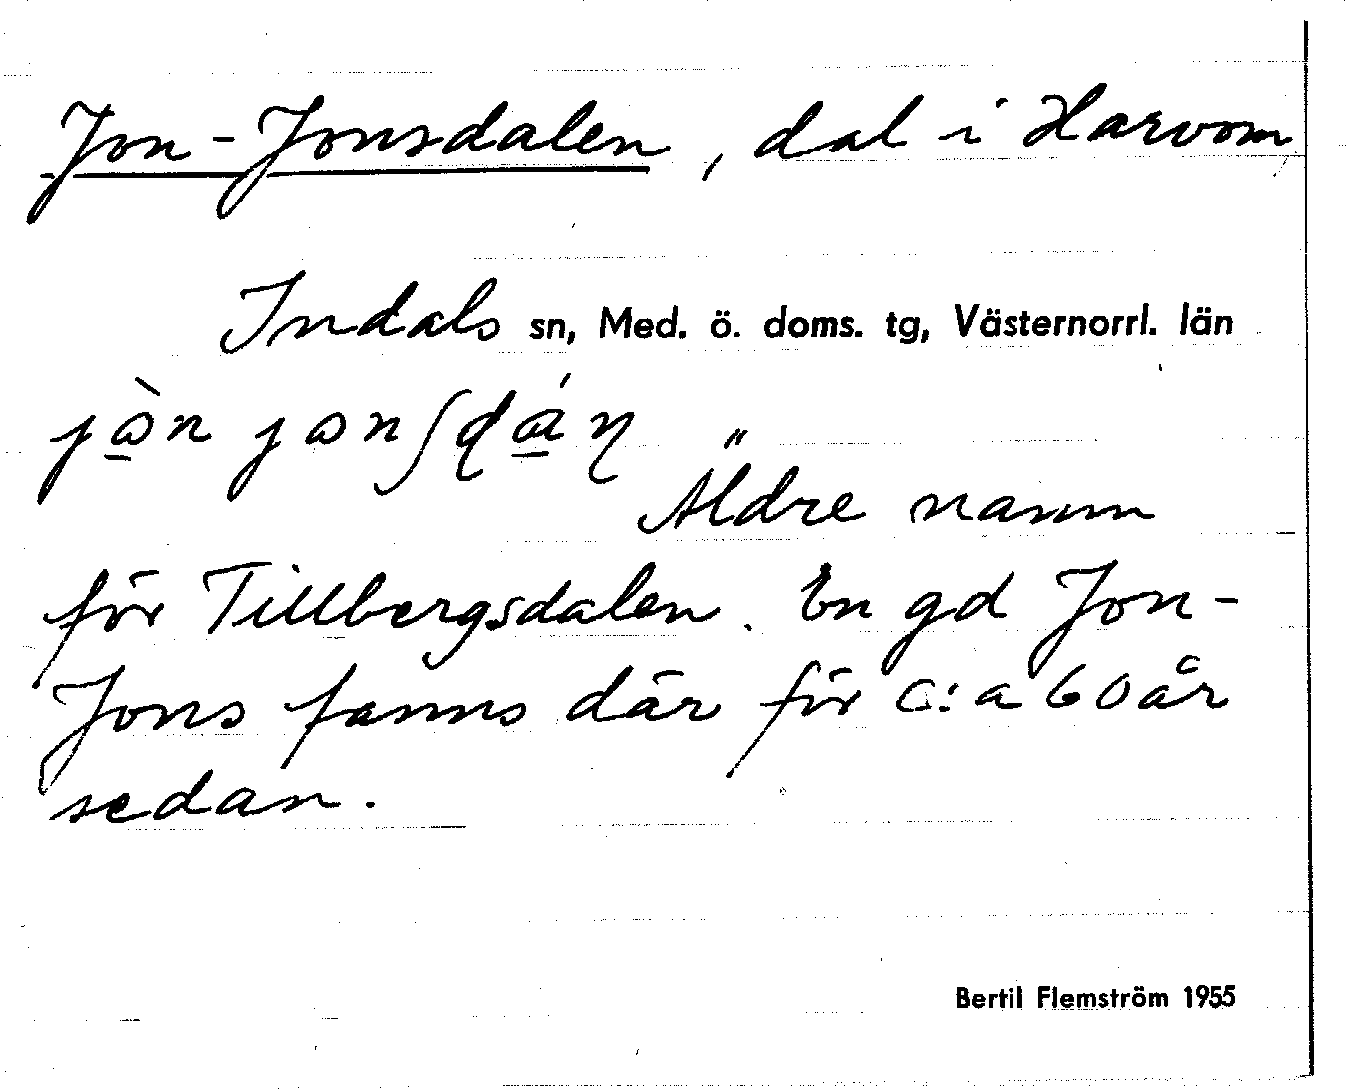 Jon-Jonsdalen, dal i Harvom,
Indals sn, Med. ö. doms. tg, Västernorrl. län
Äldre namn
för Tillbergsdalen. En gd Jon-
Jons fanns där för c:a 60 år
sedan.
Bertil Flemström 1955